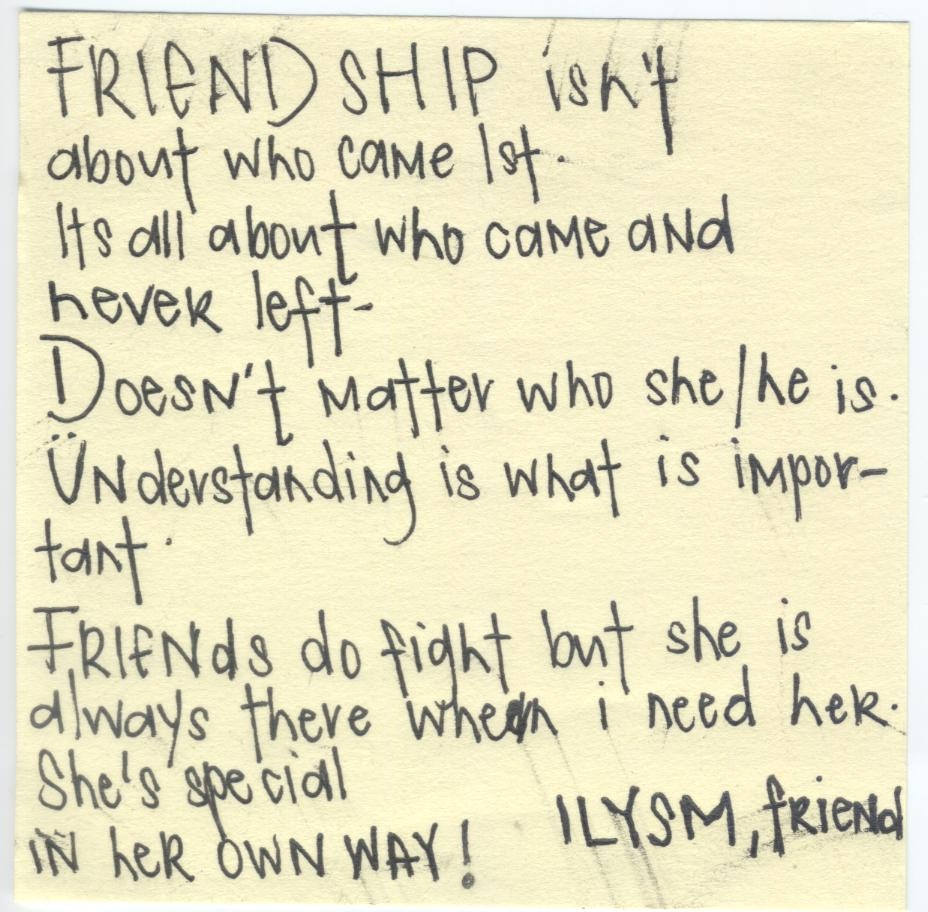 FRIENDSHIP isn't
about who came 1st.
Its all about who came and
never left-
Doesn't matter who she/he is.
Understanding is what is impor-
tant.
FRIENds do fight but she is
always there when i need her.
She's special
IN her OWN WAY!
ILYSM, friend